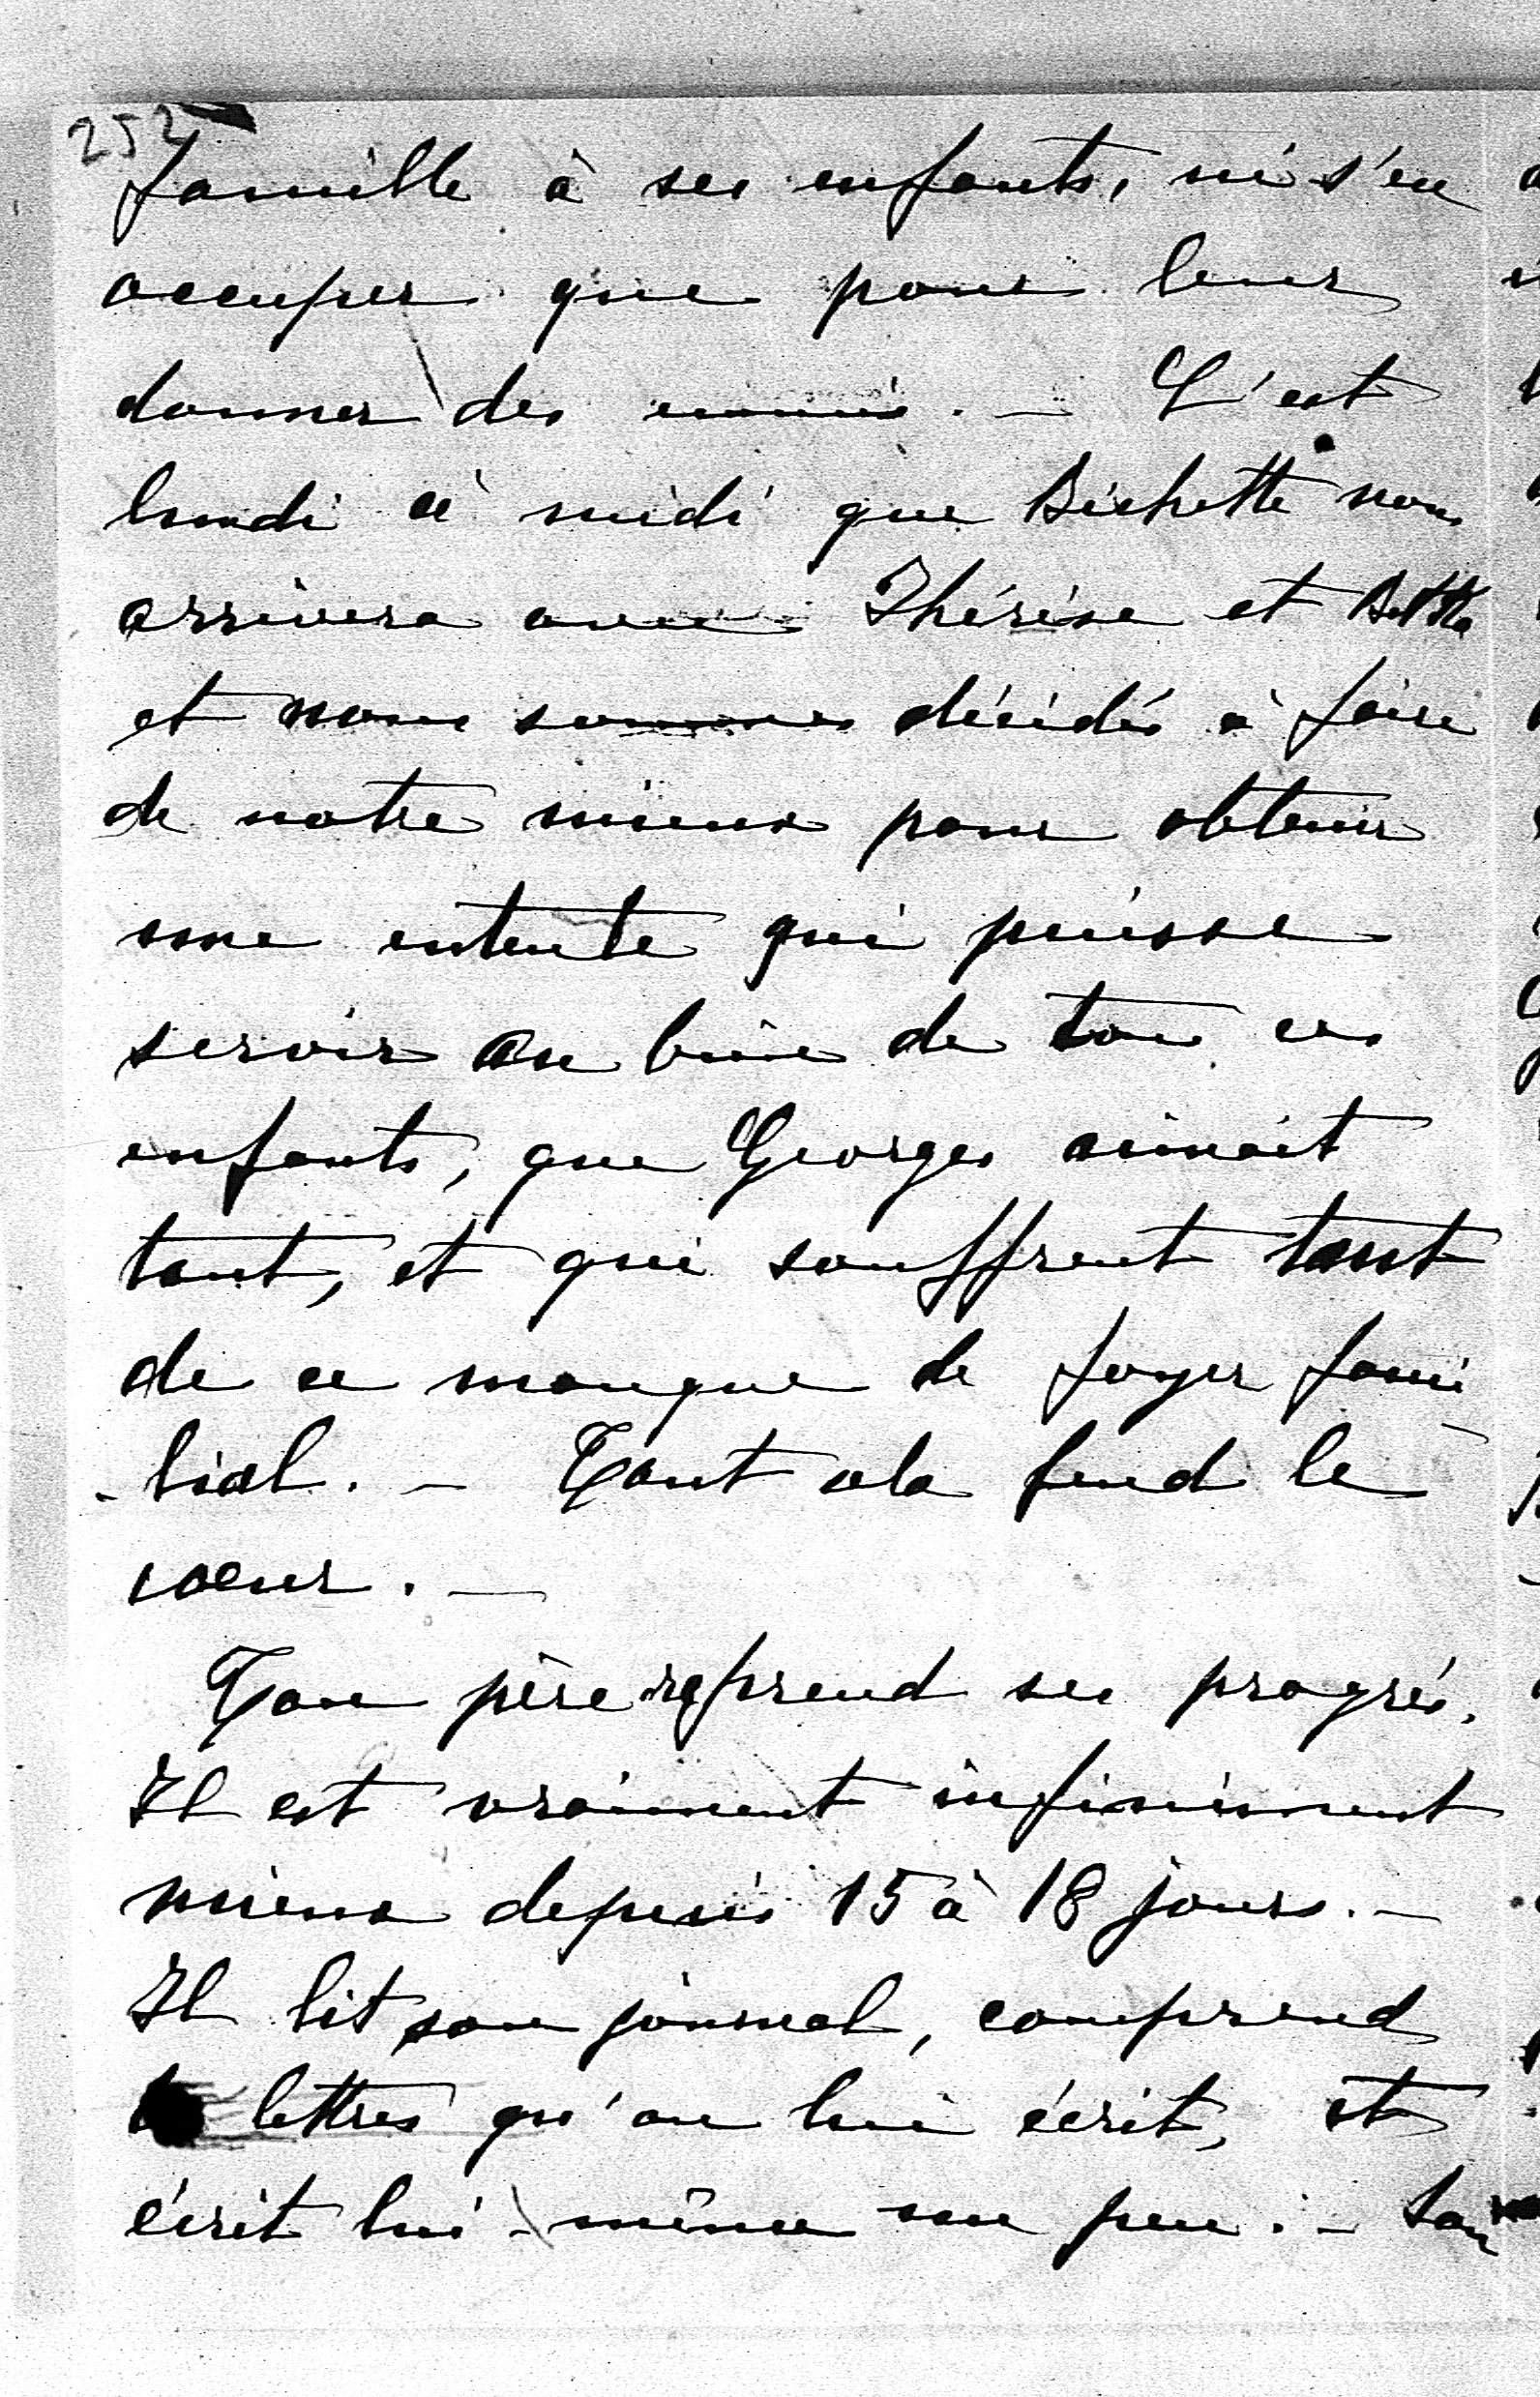 252
famille à ses enfants, ni s'en
occuper que pour leur
donner des ennuis. — C'est
lundi à midi que Bichette nous
arrivera avec Thérèse et
et nous sommes décidés à faire
de notre mieux pour obtenir
une entente qui puisse
servir au bien de tous ces
enfants, que Georges aimait
tant, et qui souffrent tant
de ce manque de foyer fami
-lial. — Tout cela fend le
cœur. —
Ton père reprend ses progrès.
Il est vraiment infiniment
mieux depuis 15 à 18 jours. —
Il lit son journal, comprend
lettres qu'on lui écrit, et
écrit lui-même un peu. —